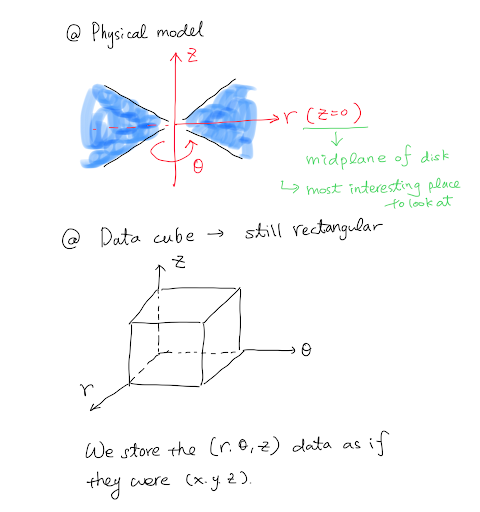 @ Physical model
z
r (z=0)
θ
midplane of disk
↳ most interesting place
→to look at
@ Data cube → still rectangular
z
θ
r
We store the (r, θ, z) data as if
they were (x. y. z).